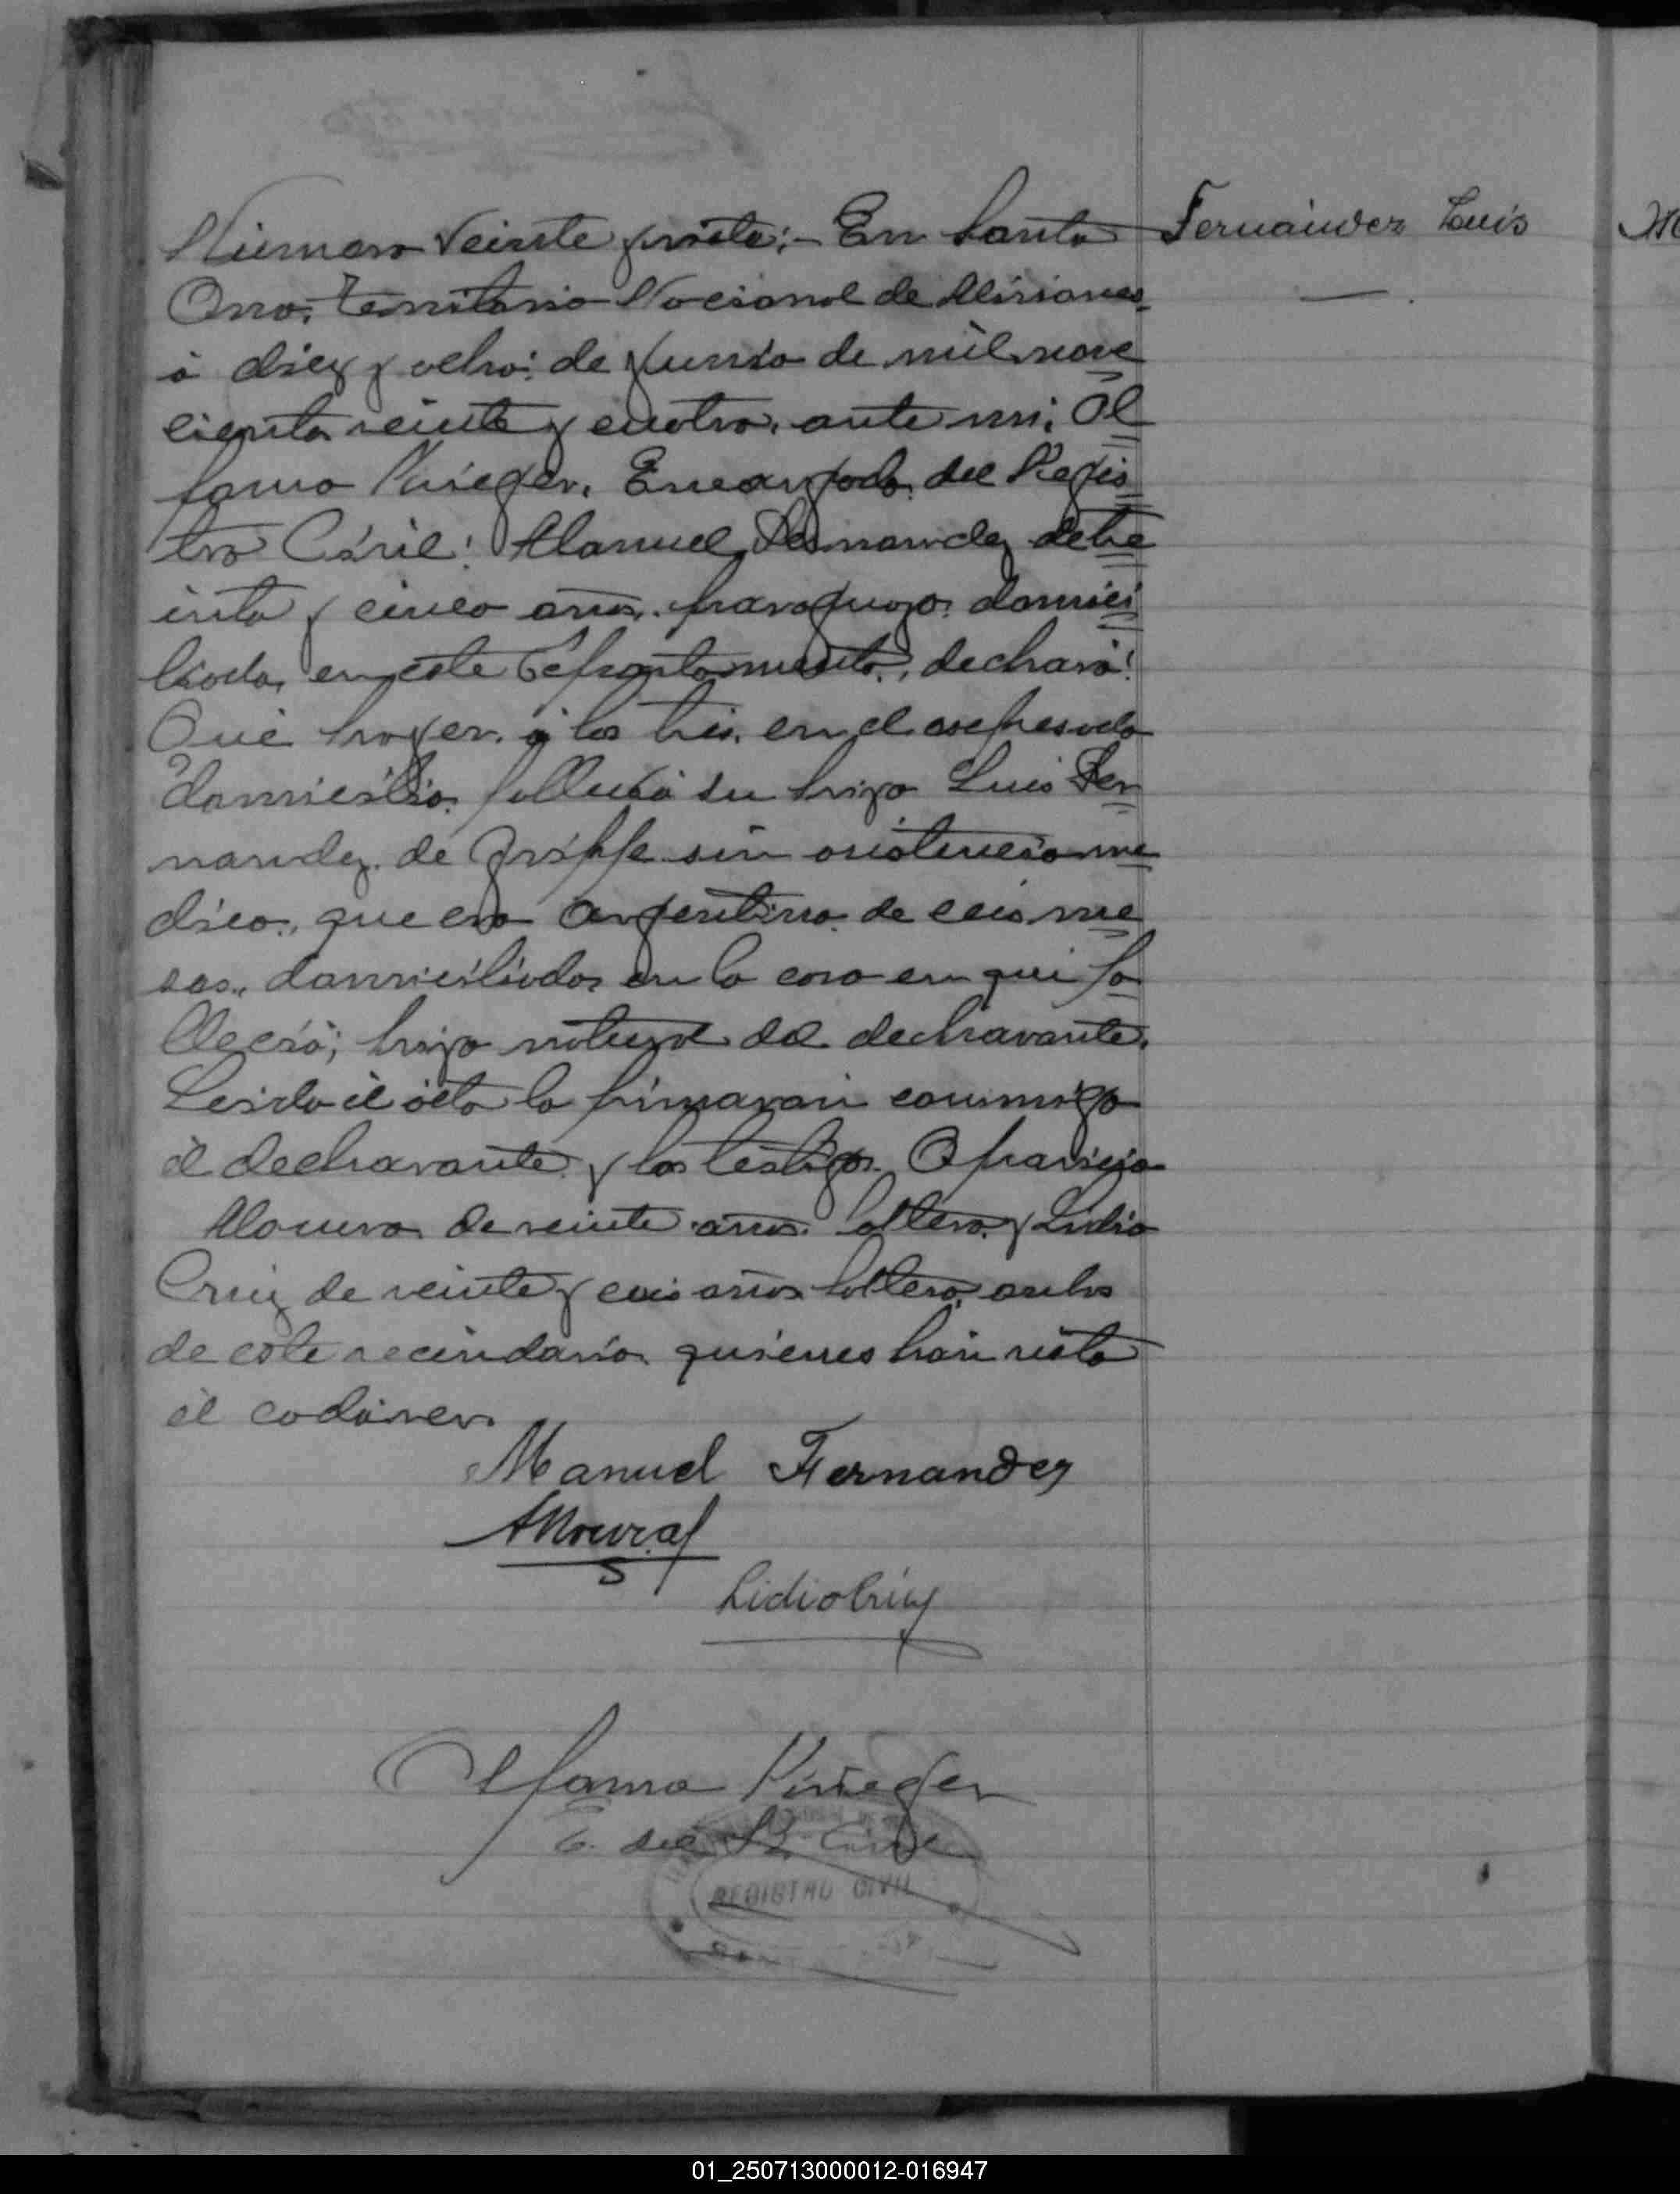 Número Veinte y siete:- En Santa
Ana. Territorio Nacional de Misiones
à diez y ocho: de Junio de mil nove
cientos veinte y cuatro. ante mi: Al
fonso Krieger. Encargado del Regis
tro Civil: Manuel Fernandez de tre
inta y cinco años. paraguayo. domici
liado, en este Departamento., declaró:
Que hayer. á las tres. en el expresado
domicilio. falleció su hijo Luis Fer
nandez. de grippe sin asistencia me
dica., que era Argentino. de ceis me
ses., domiciliado, en la casa en que fa
lleció; hijo natural del declarante.
Leida el acta la firmaron conmigo
el declarante. y los testigos. Aparicio
Moura de veinte años. Soltero. y Lidio
Cruz de veinte y ceis años soltero, anbos
de este vecindario. quienes han visto
el cadáver.
Fernández Luis
Manuel Fernandez
AMoura
Lidio Cruz
Krieger
E. del R. Civil
REGISTRO CIVIL
01_250713000012-016947